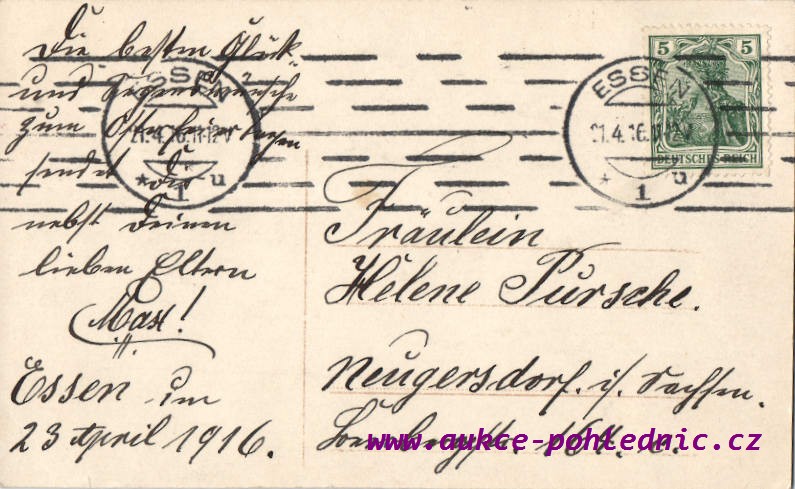 Die besten Glück-
und Segenswünsche
zum Osterfeier
sendet Dir
nebst Deinen
lieben Eltern
Max!
Essen im
23 April 1916.
ESSEN
21.4.16.11-12V
* 1 u
ESSEN
21.4.16.11-12V
* 1 u
5 5
DEUTSCHES REICH
Fräulein
Helene Pursche.
Neugersdorf. i/. Sachsen.
164. c.
www.aukce-pohlednic.cz